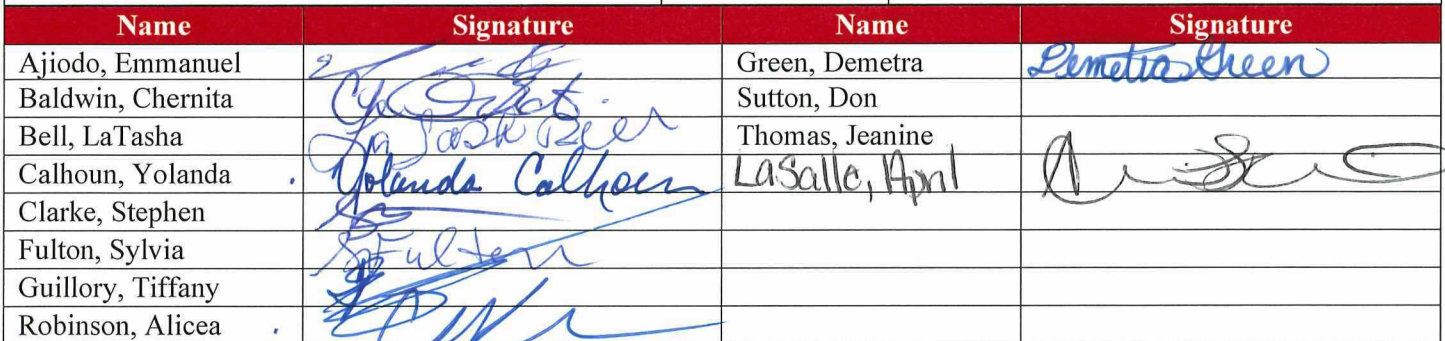 Name Signature Name Signature
Ajiodo, Emmanuel Green, Demetra Demetra Green
Baldwin, Chernita Sutton, Don
Bell, LaTasha Thomas, Jeanine
Calhoun, Yolanda Yolanda Calhoun LaSalle, April
Clarke, Stephen
Fulton, Sylvia S Fulton
Guillory, Tiffany
Robinson, Alicea